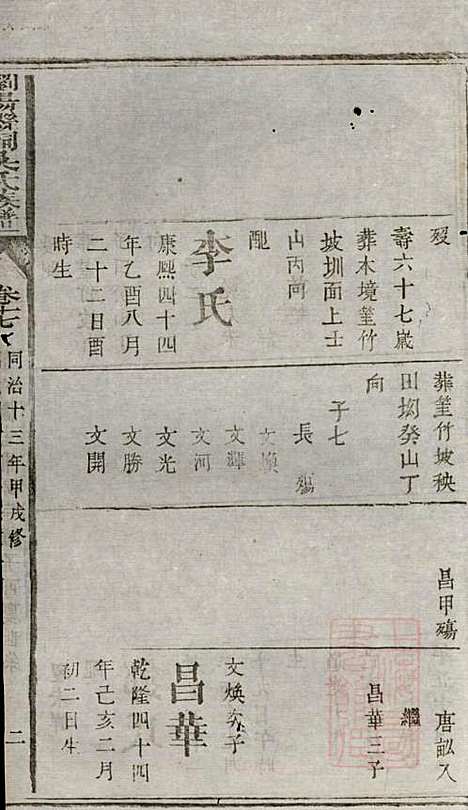 歿
壽六十七歲
葬木境篁竹
坡圳面上士
山丙向
配
李氏
康熙四十四
年乙酉八月
二十二日酉
時生
葬篁竹坡秧
田坳癸山丁
向
子七
長殤
文煥
文輝
文河
文光
文勝
文開
昌甲殤
唐訟入
繼
昌華三子
文煥
子
昌華
乾隆四十四
年己亥二月
初二日生
氏族譜
卷十七
同治十三年甲戌修
二